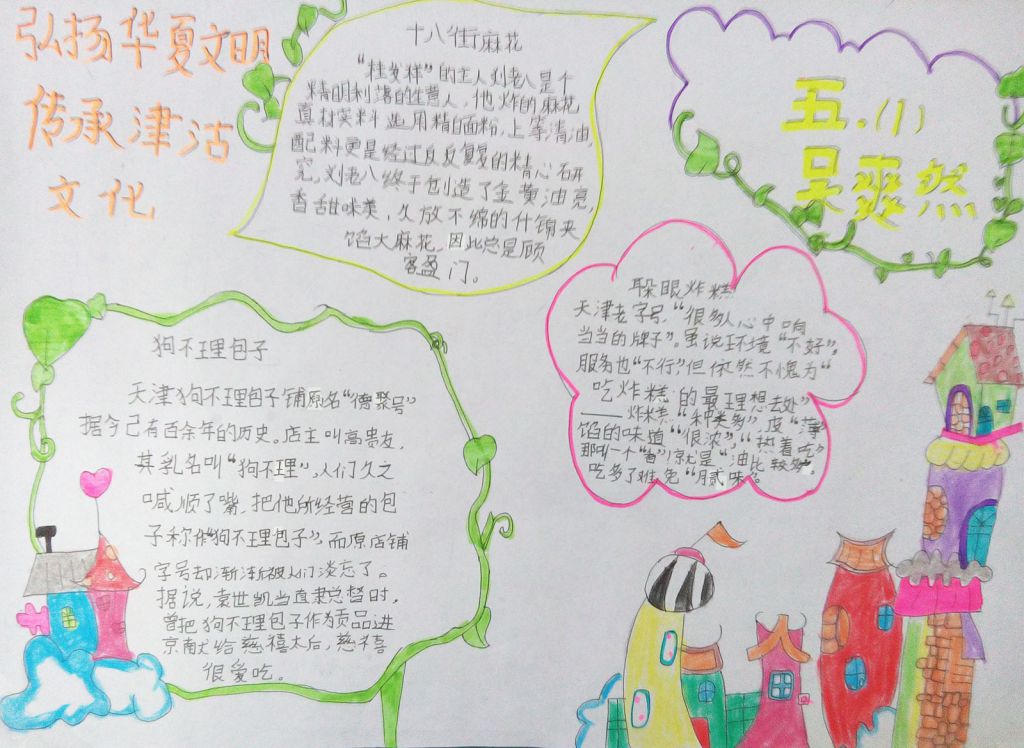 弘扬华夏文明
传承津沽
文化
十八街麻花
"桂发祥"的主人刘老八是个
精明利落的生意人，他炸的麻花
真材实料选用精白面粉，上等清油，
配料更是经过反反复复的精心研
究，刘老八终于创造了金黄油亮，
香甜味美，久放不绵的什锦夹
馅大麻花，因此总是顾
客盈门。
五.(1)
吴爽然
狗不理包子
天津狗不理包子铺原名"德聚号"
据今已有百余年的历史。店主叫高贵友，
其乳名叫"狗不理"，人们久之
喊顺了嘴，把他所经营的包
子称作"狗不理包子"，而原店铺
字号却渐渐被人们淡忘了。
据说，袁世凯当直隶总督时，
曾把狗不理包子作为贡品进
京献给慈禧太后，慈禧
很爱吃。
躲眼炸糕
天津老字号，"很多人心中响
当当的牌子"。虽说环境"不好"，
服务也"不行"但依然不愧为"
吃炸糕的最理想去处"
——炸糕"种类多"，皮"薄"
馅的味道"很浓"，"热着吃"
那叫一个"香"！就是"油比较多"。
吃多了难免"腻味"。